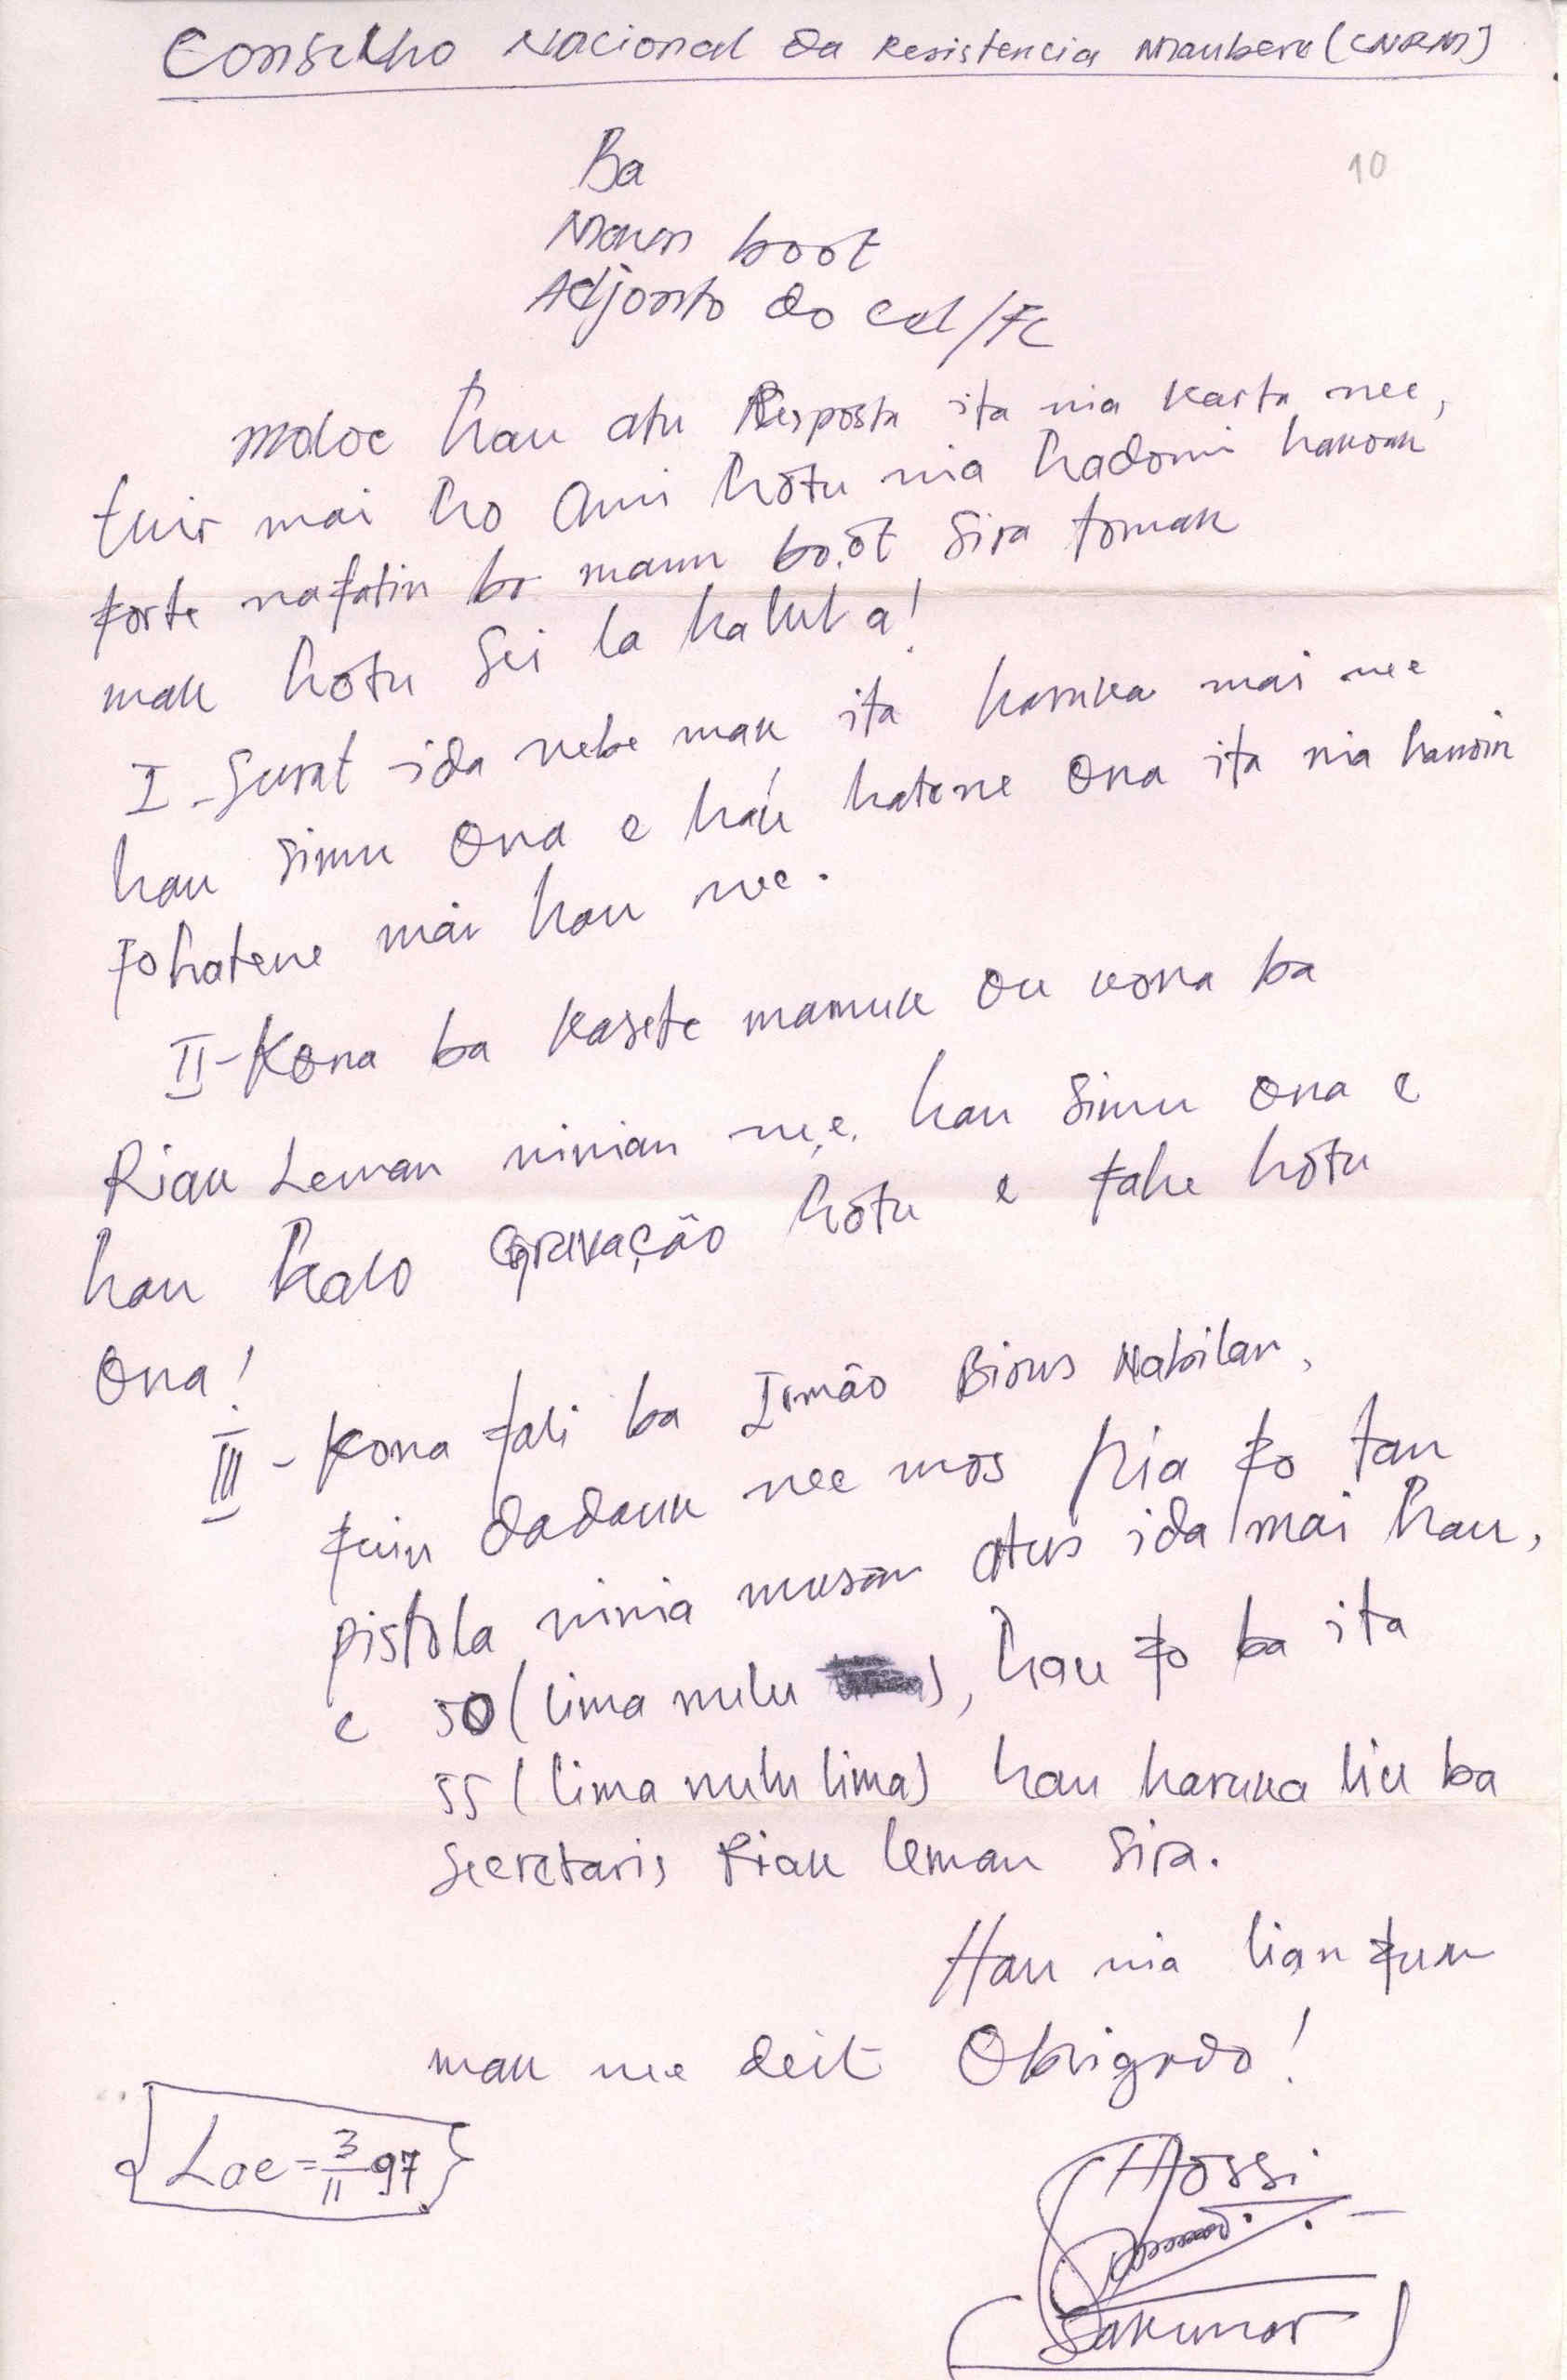 Conselho Nacional da Resistencia Maubere (CNRM)
10
Ba
Maun boot
Adjonto do cel/FC
Moloc hau atu Resposta ita nia karta nee,
tuir mai ho Ami hotu nia hadomi hakoak
forte nafatin ba maun bo.ot sira tomak
mak hotu Sei la haluha!
I - Surat ida nebe mak ita haruka mai nee
hau simu Ona e háu hatene Ona ita nia hanoin
fohatene mai hau nee.
II - Kona ba kasete mamuk ou kona ba
Riak Leman ninian ne,e, hau simu Ona e
hau halo gravação hotu e fahe hotu
Ona!
III - Kona fali ba Irmão Bious Nabilan,
fuin dadauk nee mos hia fo tan
pistola ninia musan atus ida mai hau,
e 50 (lima nulu), hau fo ba ita
55 (lima nulu lima) hau haruka liu ba
Secretaris Riak leman Sira.
Hau nia lian fuak
mak nee deit Obrigado!
Loe = 3/11 97
Hossi
Sakunar